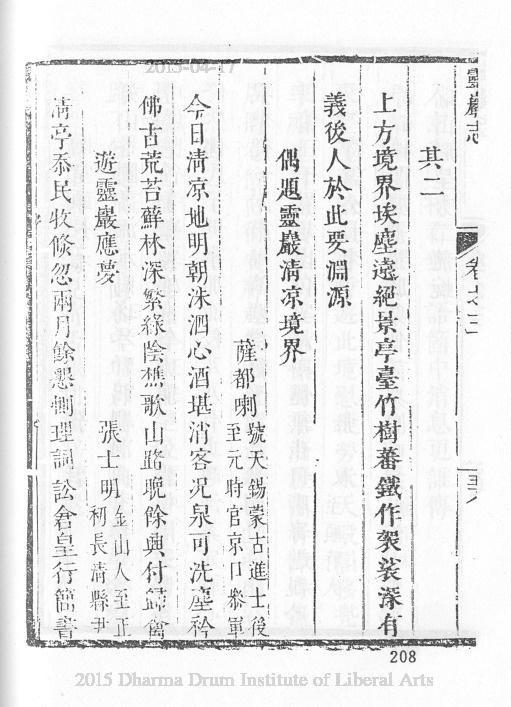 2015-04-17
靈巖志
卷之三
其二
上方境界埃塵遠絕景亭臺竹樹蕃鐵作袈裟深有
義後人於此要淵源
偶題靈巖清凉境界
薩都喇號天錫蒙古進士後
至元時官京口叅軍
今日清凉地明朝洙泗心酒堪消客况泉可洗塵衿
佛古荒苔蘚林深繁綠陰樵歌山路晩餘興付歸禽
遊靈巖應夢
張士明金山人至正
初長清縣尹
清亭忝民牧倐忽兩月餘懇惻理詞訟倉皇行簡書
208
2015 Dharma Drum Institute of Liberal Arts